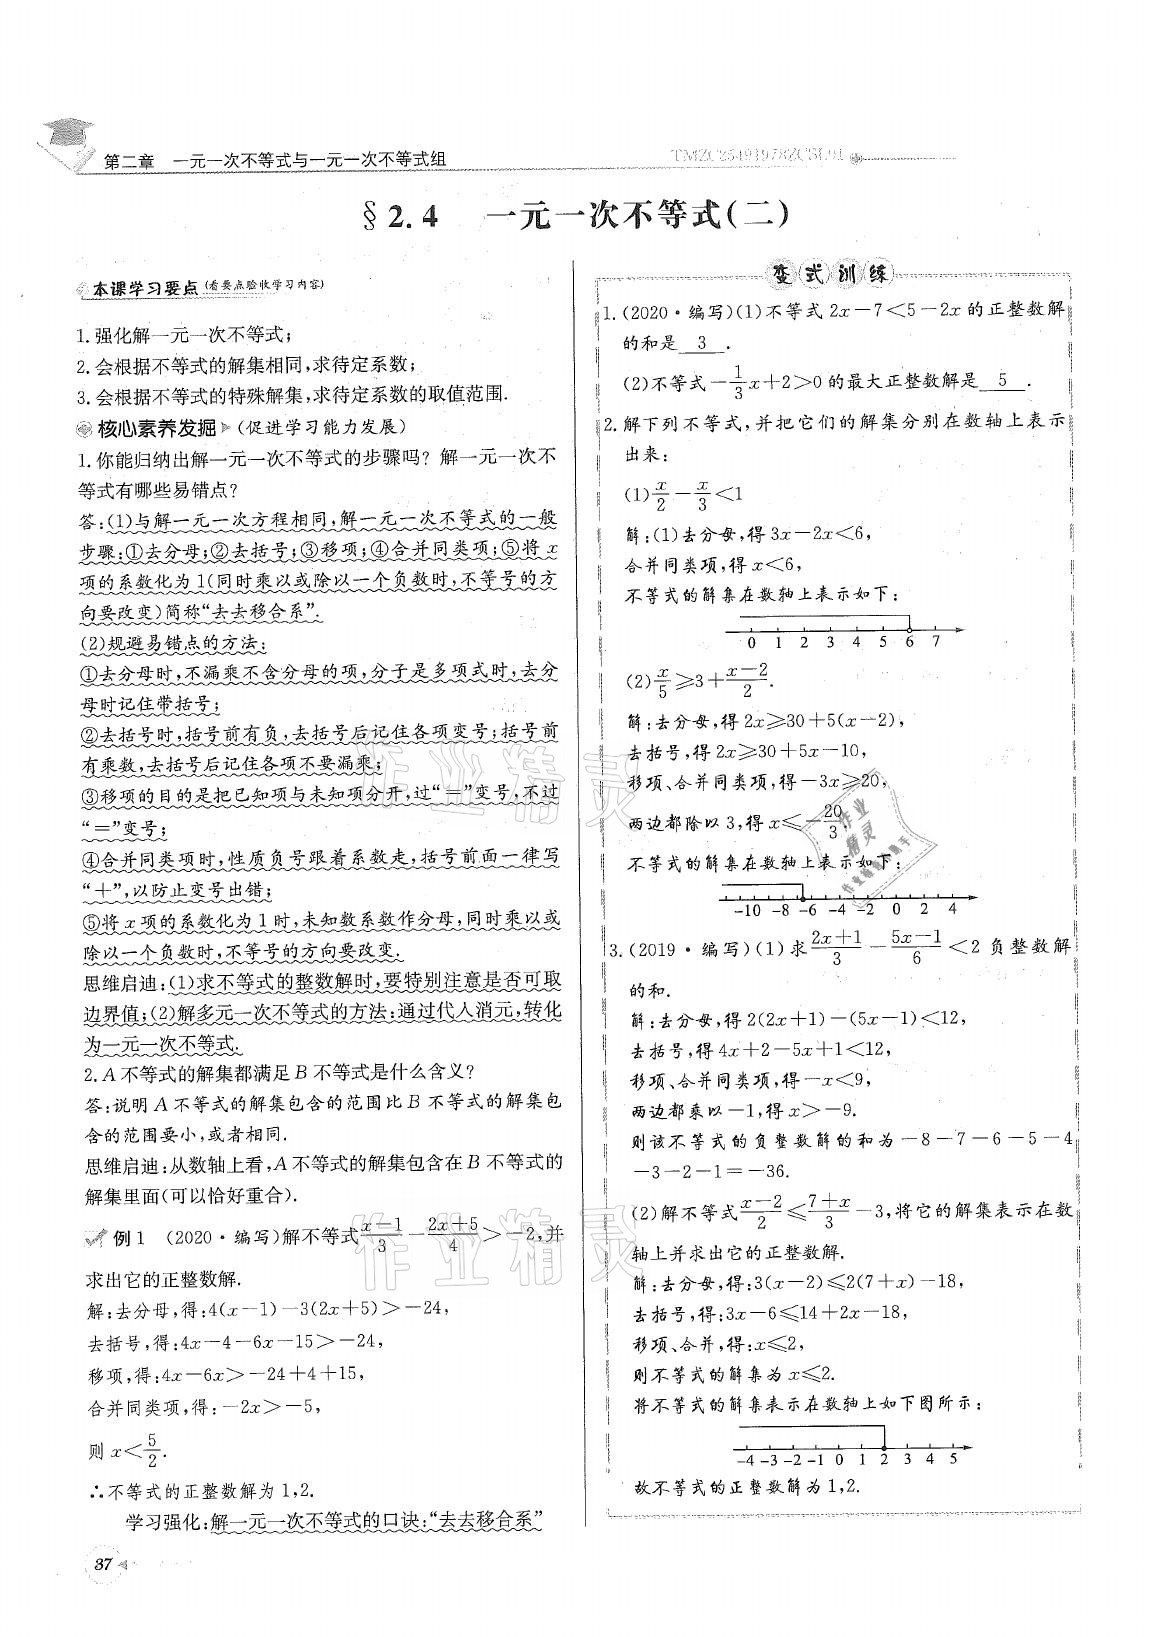 第二章 一元一次不等式与一元一次不等式组
TMZC25491978ZCSL01
§2.4 一元一次不等式(二)
本课学习要点(看要点验收学习内容)
1.强化解一元一次不等式;
2.会根据不等式的解集相同,求待定系数;
3.会根据不等式的特殊解集,求待定系数的取值范围.
核心素养发掘(促进学习能力发展)
1.你能归纳出解一元一次不等式的步骤吗?解一元一次不
等式有哪些易错点?
答:(1)与解一元一次方程相同,解一元一次不等式的一般
步骤:①去分母;②去括号;③移项;④合并同类项;⑤将 x
项的系数化为1(同时乘以或除以一个负数时,不等号的方
向要改变)简称“去去移合系”.
(2)规避易错点的方法:
①去分母时,不漏乘不含分母的项,分子是多项式时,去分
母时记住带括号;
②去括号时,括号前有负,去括号后记住各项变号;括号前
有乘数,去括号后记住各项不要漏乘;
③移项的目的是把已知项与未知项分开,过“=”变号,不过
“=”变号;
④合并同类项时,性质负号跟着系数走,括号前面一律写
“+”,以防止变号出错;
⑤将 x 项的系数化为1时,未知数系数作分母,同时乘以或
除以一个负数时,不等号的方向要改变.
思维启迪:(1)求不等式的整数解时,要特别注意是否可取
边界值;(2)解多元一次不等式的方法:通过代人消元,转化
为一元一次不等式.
2.A不等式的解集都满足B不等式是什么含义?
答:说明A不等式的解集包含的范围比B不等式的解集包
含的范围要小,或者相同.
思维启迪:从数轴上看,A不等式的解集包含在B不等式的
解集里面(可以恰好重合).
例1 (2020·编写)解不等式 (x-1)/3 - (2x+5)/4 > -2,并
求出它的正整数解.
解:去分母,得:4(x-1)-3(2x+5)>-24,
去括号,得:4x-4-6x-15>-24,
移项,得:4x-6x>-24+4+15,
合并同类项,得:-2x>-5,
则 x<5/2.
∴不等式的正整数解为1,2.
学习强化:解一元一次不等式的口诀:“去去移合系”
37
变式训练
1.(2020·编写)(1)不等式 2x-7<5-2x 的正整数解
的和是 3 .
(2)不等式-1/3x+2>0的最大正整数解是 5 .
2.解下列不等式,并把它们的解集分别在数轴上表示
出来:
(1)x/2-x/3<1
解:(1)去分母,得3x-2x<6,
合并同类项,得x<6,
不等式的解集在数轴上表示如下:
0 1 2 3 4 5 6 7
(2)x/5≥3+(x-2)/2.
解:去分母,得2x≥30+5(x-2),
去括号,得2x≥30+5x-10,
移项、合并同类项,得-3x≥20,
两边都除以3,得x≤-20/3.
不等式的解集在数轴上表示如下:
-10 -8 -6 -4 -2 0 2 4
3.(2019·编写)(1)求(2x+1)/3-(5x-1)/6<2负整数解
的和.
解:去分母,得2(2x+1)-(5x-1)<12,
去括号,得4x+2-5x+1<12,
移项、合并同类项,得-x<9,
两边都乘以-1,得x>-9.
则该不等式的负整数解的和为-8-7-6-5-4
-3-2-1=-36.
(2)解不等式(x-2)/2≤(7+x)/3-3,将它的解集表示在数
轴上并求出它的正整数解.
解:去分母,得:3(x-2)≤2(7+x)-18,
去括号,得:3x-6≤14+2x-18,
移项、合并,得:x≤2,
则不等式的解集为x≤2.
将不等式的解集表示在数轴上如下图所示:
-4 -3 -2 -1 0 1 2 3 4 5
故不等式的正整数解为1,2.
作业精灵
作业精灵
作业精灵